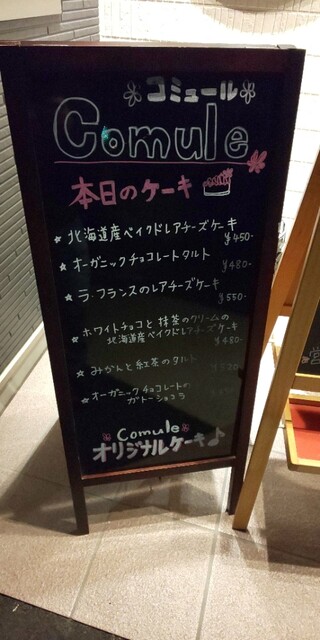 コミュール
Comule
本日のケーキ
★ 北海道産ベイクドレアチーズケーキ
¥450-
★ オーガニックチョコレートタルト
¥480-
★ ラ・フランスのレアチーズケーキ
¥550-
★ ホワイトチョコと抹茶のクリームの
北海道産ベイクドレアチーズケーキ
¥480-
★ みかんと紅茶のタルト
★ オーガニックチョコレートの
ガトーショコラ
Comule
オリジナルケーキ♪